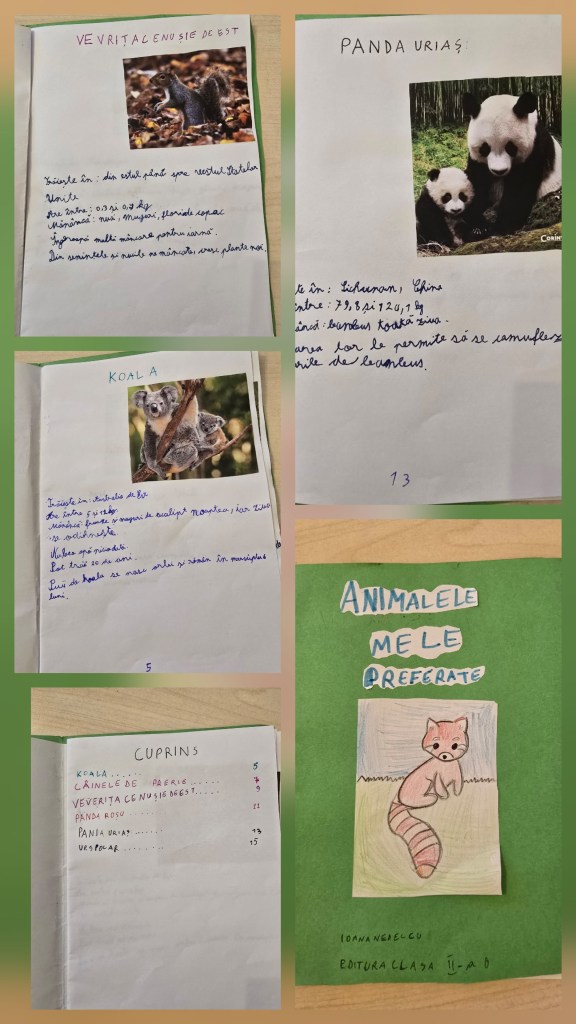 VEVRIȚA CENUȘIE DE EST
Trăiește în: din estul până spre vestul Statelor
Unite
Are între: 0,3 și 0,7 kg
Mănâncă: nuci, muguri, flori de copac
Îngroapă multă mâncare pentru iarnă.
Din semințele și nucile ne mâncate, cresc plante noi.
PANDA URIAȘ
te în: Sichunan, China
între: 79,8 și kg
âncă: bambus toată ziua.
area lor le permite să se camufleze
de bambus.
13
KOALA
Trăiește în: Australia de Est
Are între 5 și 12 kg.
Mănâncă: frunze și muguri de eucalipt noaptea, iar ziua
se odihnește.
Nu bea apă niciodată.
Pot trăi 20 de ani.
Puii de koala se nasc orbi și stau în marsupiu
luni.
5
CUPRINS
KOALA...... 5
CÂINELE DE PRERIE..... 7
VEVERIȚA CENUȘIE DE EST.... 9
PANDA ROȘU ...... 11
PANDA URIAȘ ........ 13
URS POLAR ........ 15
ANIMALELE
MELE
PREFERATE
IOANA NEDELCU
EDITURA CLASA II-A D